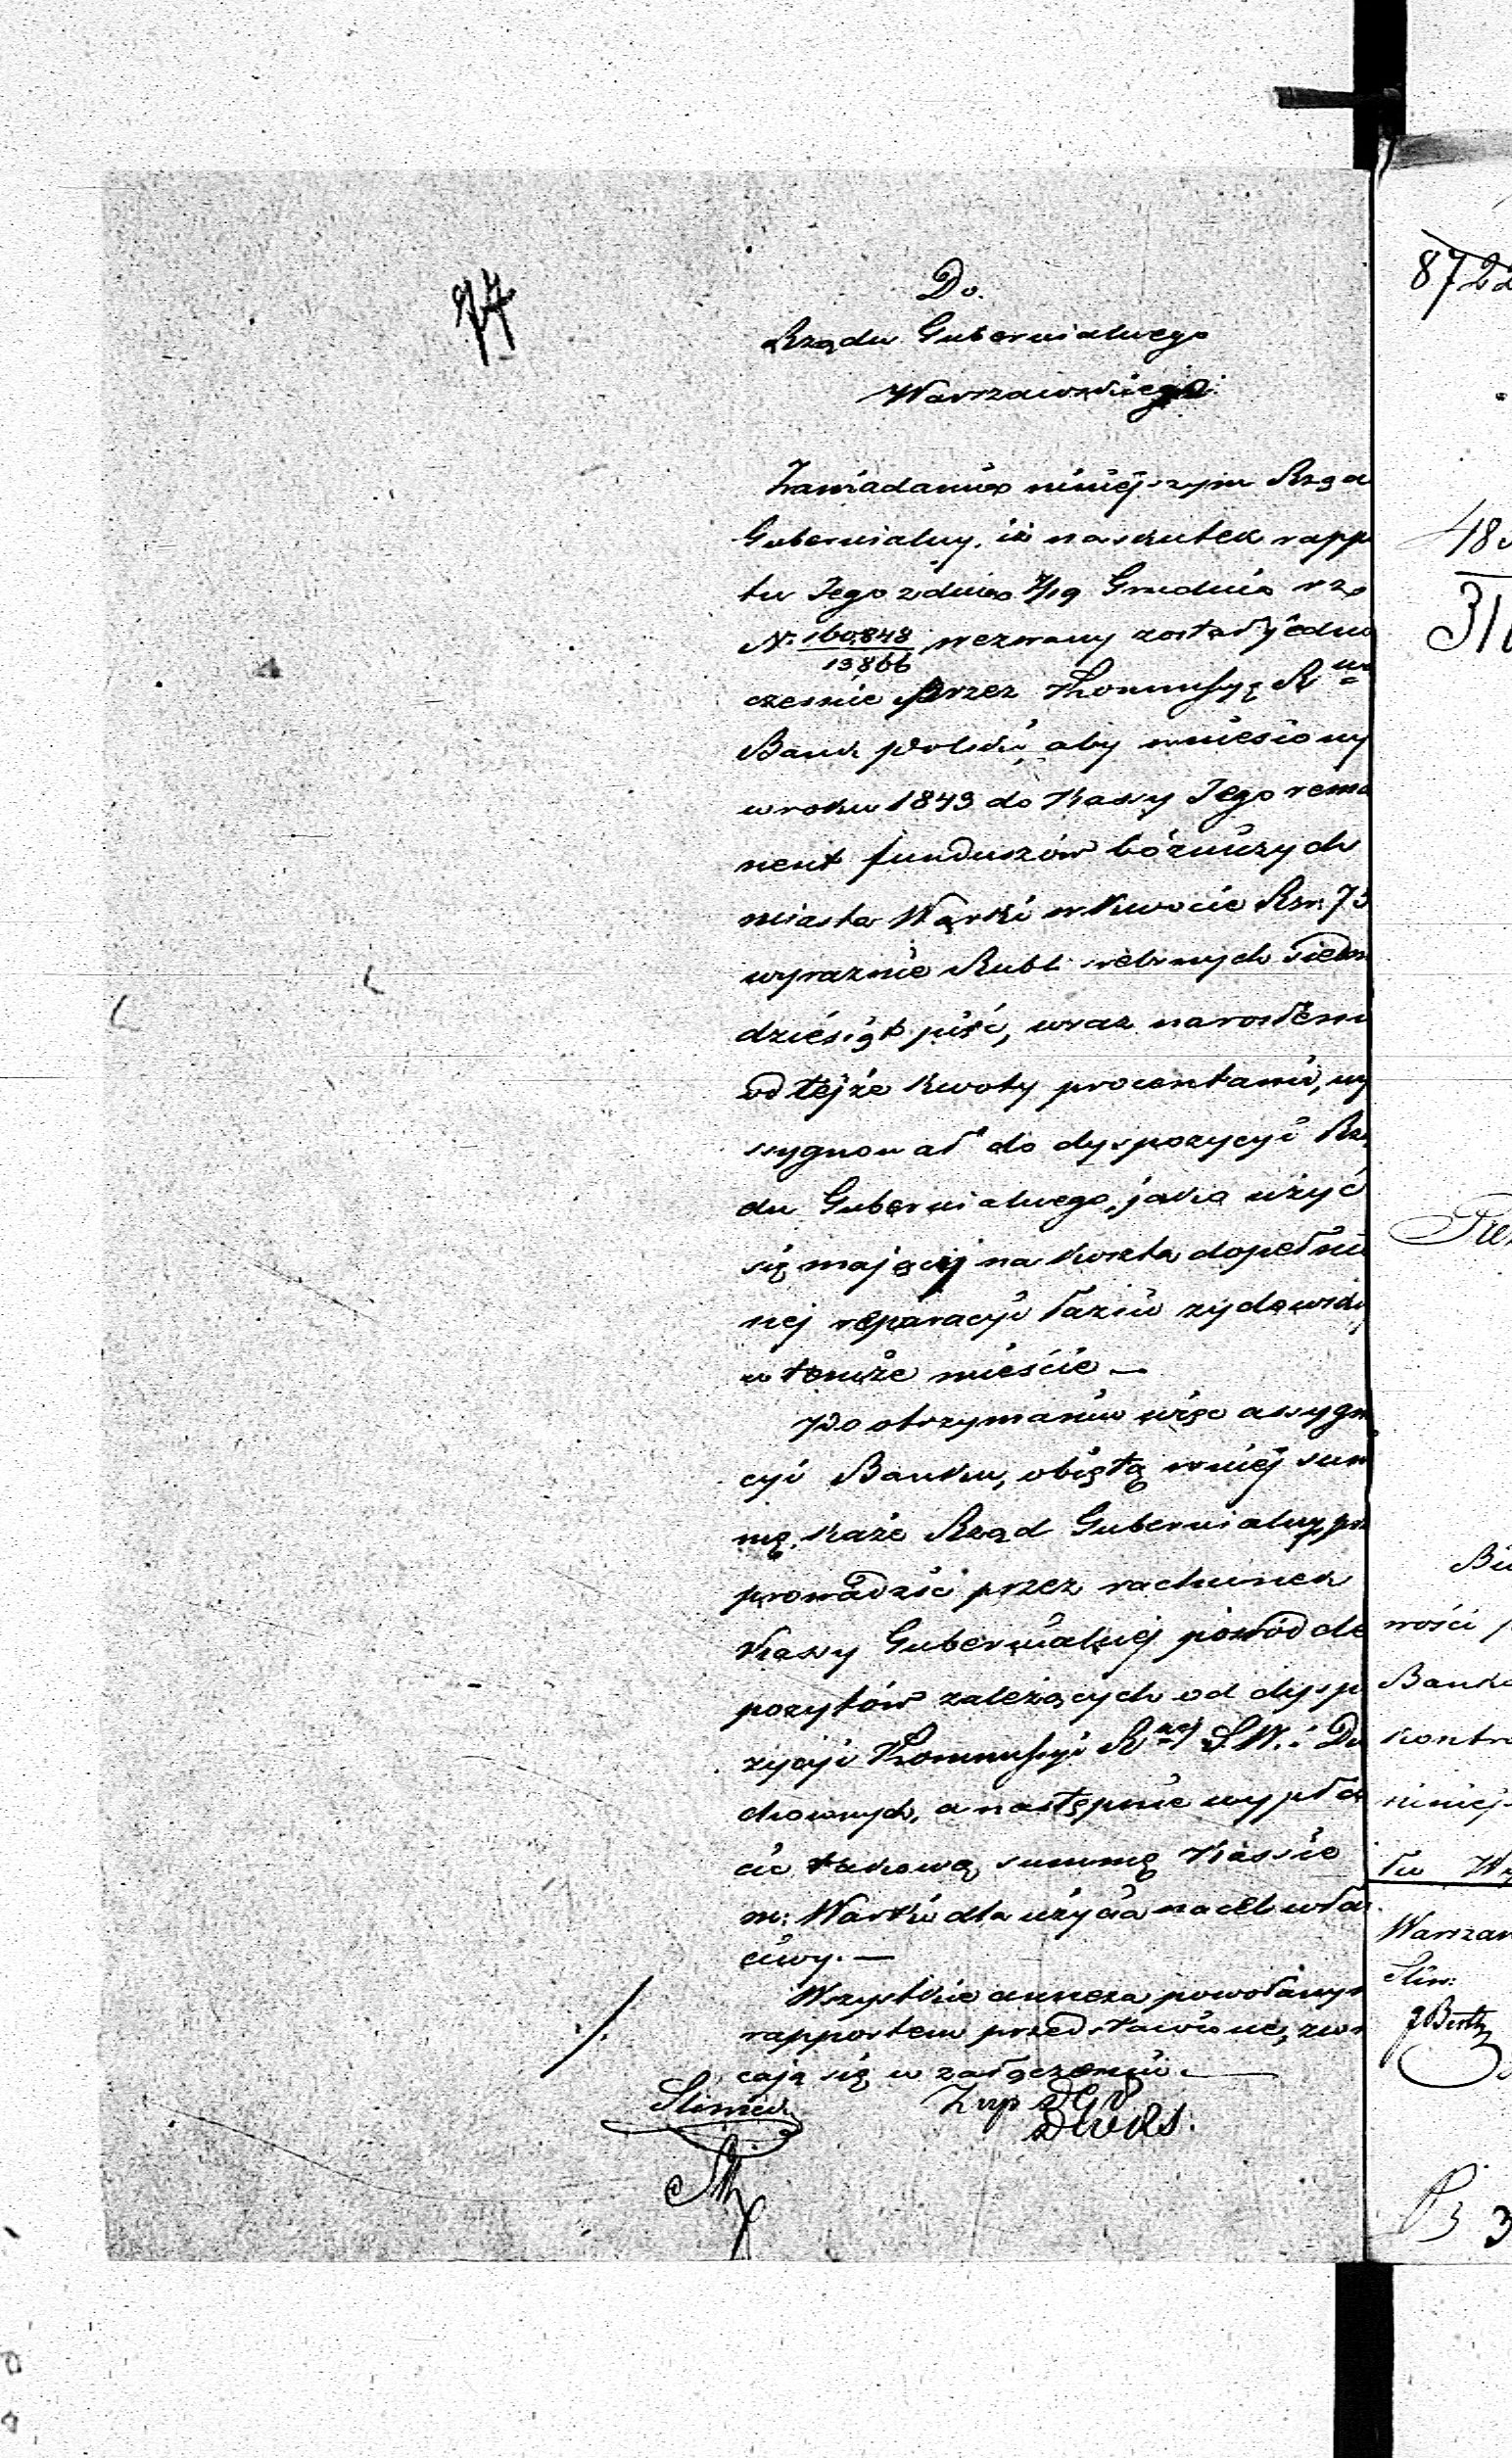 77
Do.
Rządu Gubernialnego
Warszawskiego.
Zawiadamia niniejszym Rząd
Gubernialny, iż na skutek rapp
tu Jego z dnia 7/19 Grudnia r. z.
N. 160,848/13,866 wezwany został jedno
cześnie przez Kommissyą R
Bank Polski, aby wniesiony
w roku 1843 do Kassy Jego rema
nent funduszów bóżniczych
miasta Warki w kwocie Rsr. 75
wyraźnie Rubli srebrnych siedm
dziesiąt pięć, wraz narosłemi
od tejże kwoty procentami, wy
ssygnował do dyspozycyi Rzą
du Gubernialnego, jako użyć
się mającej na koszta dopełnio
nej reparacyi łaźni żydowskiej
w temże mieście —
Po otrzymaniu więc assygna
cyi Banku, objętą w niej sum
mę, każe Rząd Gubernialny prze
prowadzić przez rachunek
Kassy Gubernialnej powód de
pozytów należących od dyspo
zycyi Kommissyi R S. W. i Du
chownych, a następnie wypła
cić takową summę Kassie
m: Warki dla użycia na cel właś
ciwy. —
Wszystkie annexa powołanym
rapportem przedstawione, zwra
cają się w załączeniu. —
8722
483
31
Banku
kontro
niniej
Warszaw